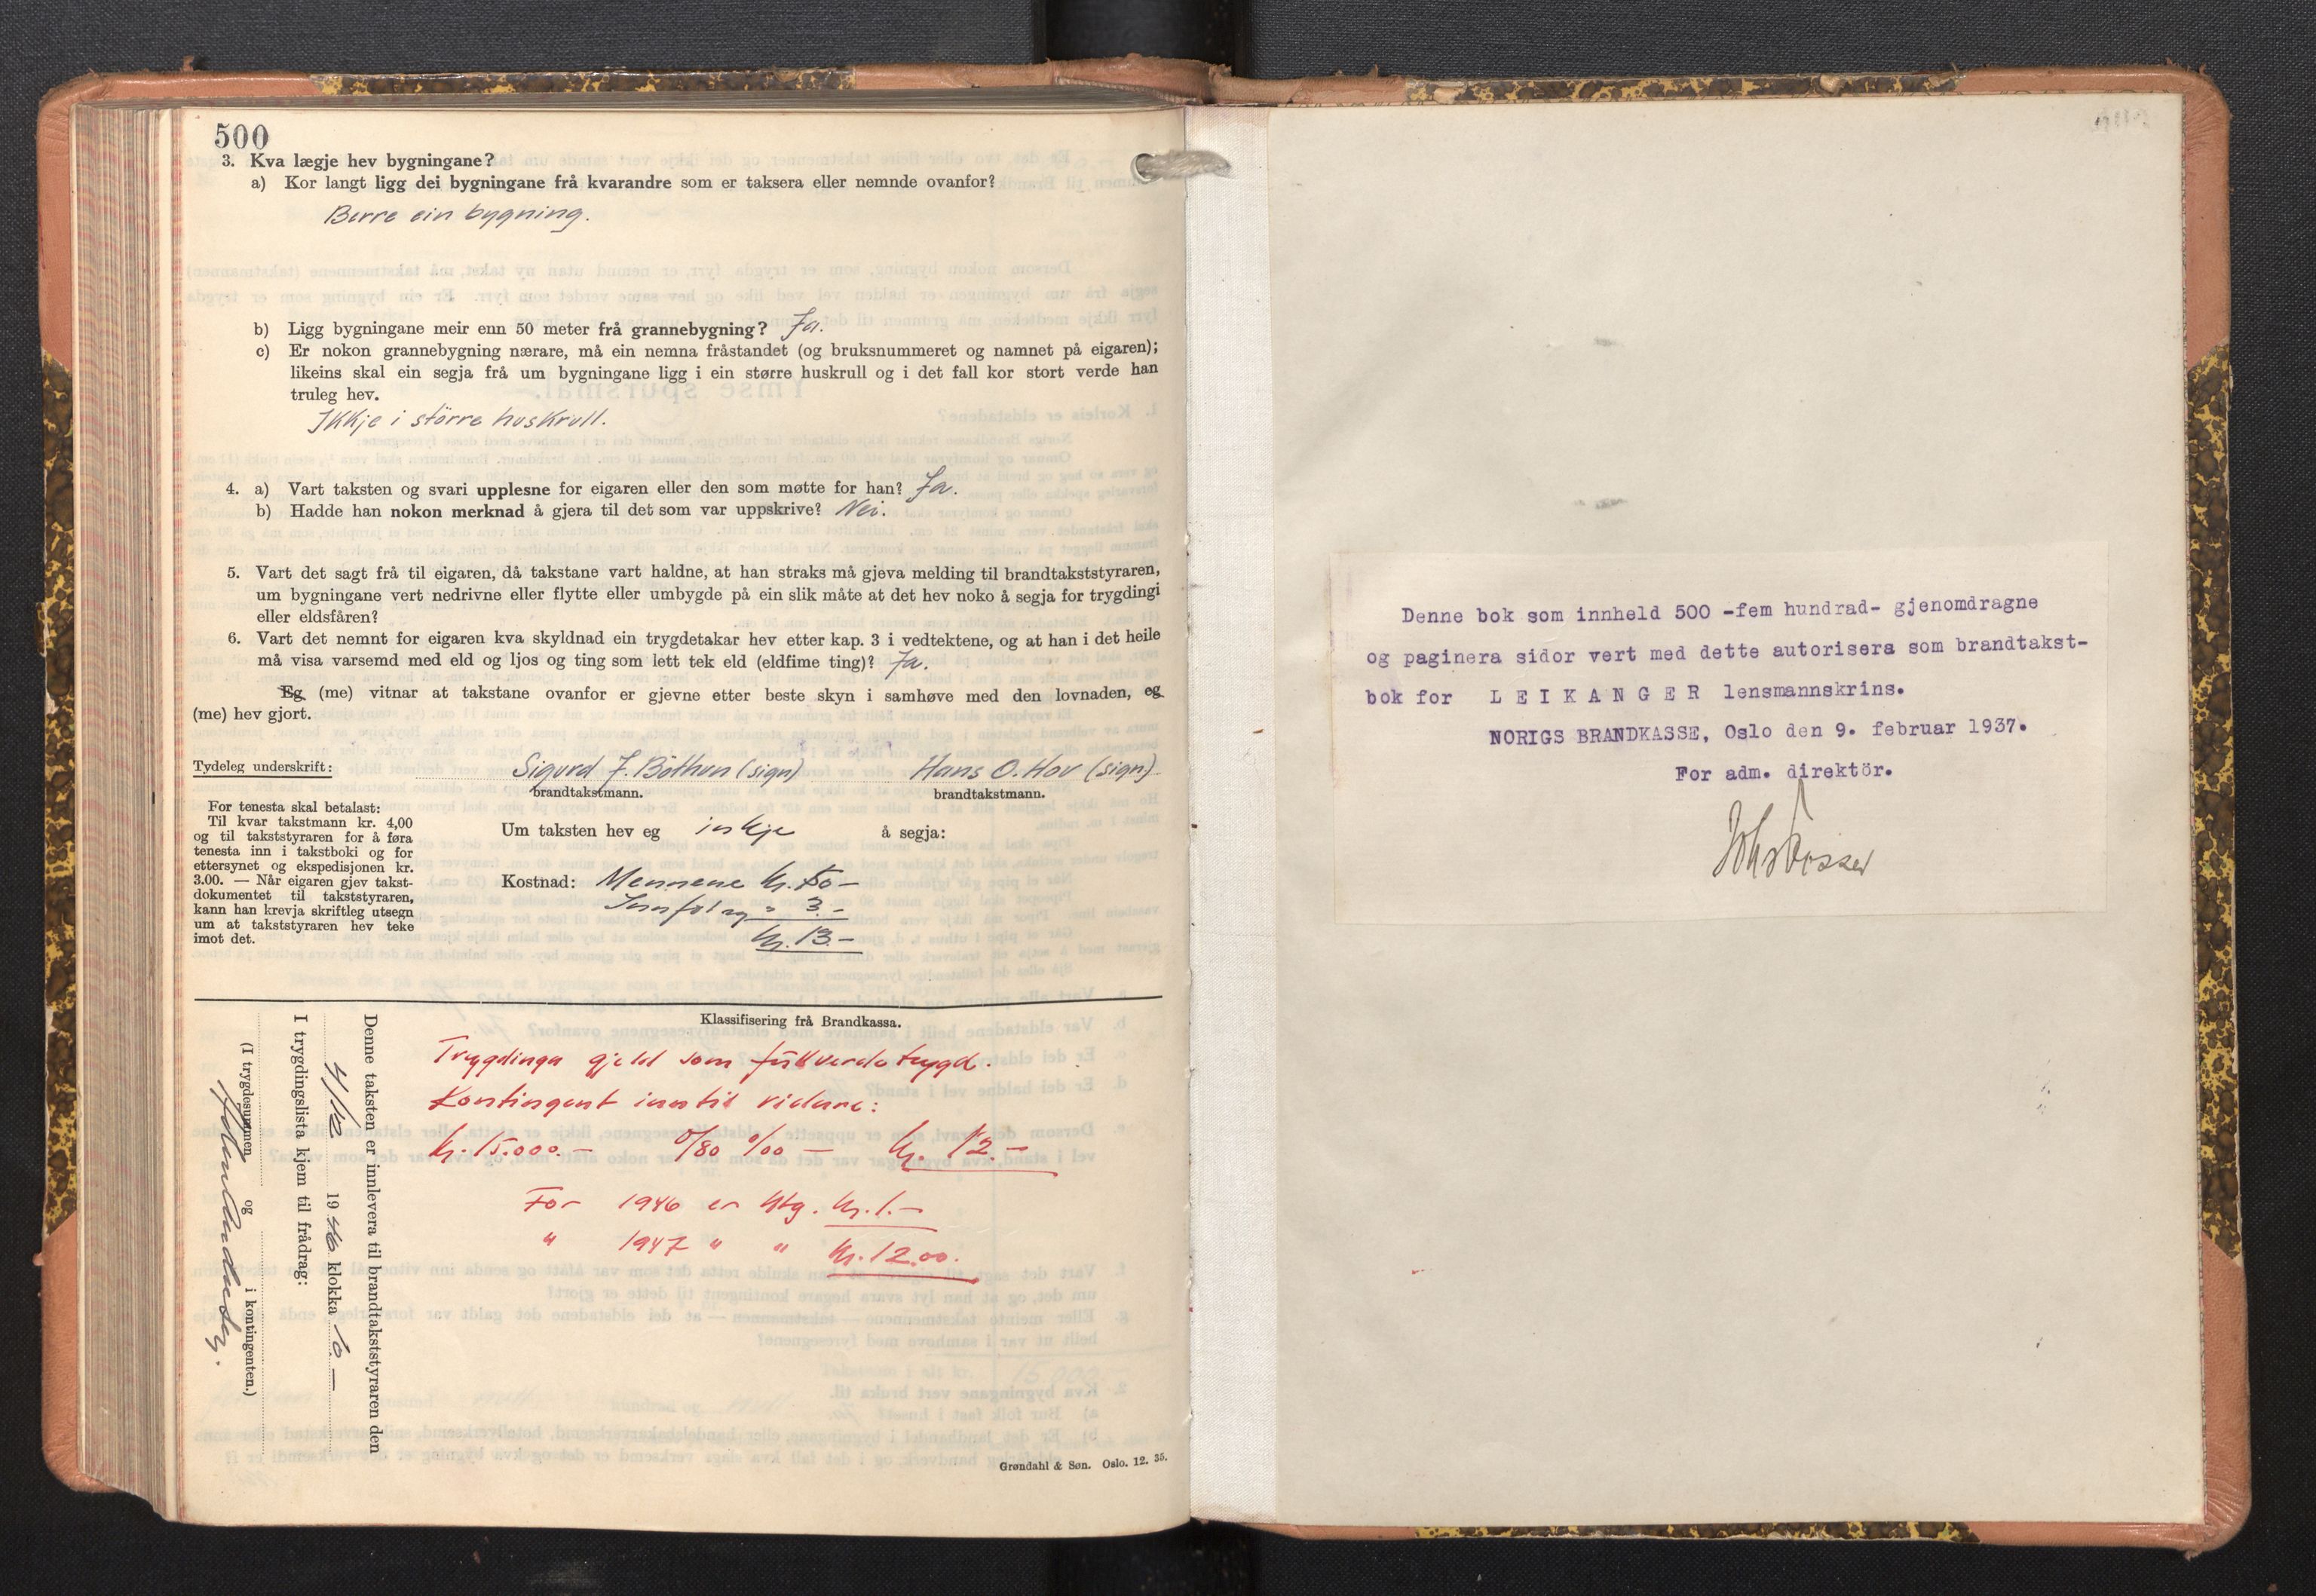 500
3. Kva lægje hev bygningane?
a) Kor langt ligg dei bygningane frå kvarandre som er taksera eller nemnde ovanfor?
Berre ein bygning.
b) Ligg bygningane meir enn 50 meter frå grannebygning? Ja.
c) Er nokon grannebygning nærare, må ein nemna fråstandet (og bruksnummeret og namnet på eigaren);
likeins skal ein segja frå um bygningane ligg i ein større huskrull og i det fall kor stort verde han
truleg hev.
Ikkje i større huskrull.
4. a) Vart taksten og svari upplesne for eigaren eller den som møtte for han? Ja.
b) Hadde han nokon merknad å gjera til det som var uppskrive? Nei.
5. Vart det sagt frå til eigaren, då takstane vart haldne, at han straks må gjeva melding til brandtakststyraren,
um bygningane vert nedrivne eller flytte eller umbygde på ein slik måte at det hev noko å segja for trygdingi
eller eldsfåren?
6. Vart det nemnt for eigaren kva skyldnad ein trygdetakar hev etter kap. 3 i vedtektene, og at han i det heile
må visa varsemd med eld og ljos og ting som lett tek eld (eldfime ting)? Ja.
Eg (me) vitnar at takstane ovanfor er gjevne etter beste skyn i samhøve med den lovnaden, eg
(me) hev gjort.
Tydeleg underskrift: Sigurd J. Böthun (sign) Hans O. Hov (sign)
brandtakstmann. brandtakstmann.
For tenesta skal betalast:
Til kvar takstmann kr. 4,00
og til takststyraren for å føra
tenesta inn i takstboki og for
ettersynet og ekspedisjonen kr.
3.00. — Når eigaren gjev takst-
dokumentet til takststyraren,
kann han krevja skriftleg utsegn
um at takststyraren hev teke
imot det.
Um taksten hev eg inkje å segja:
Kostnad: Mennene kr. 10 –
" 3.–
kr. 13.–
Klassifisering frå Brandkassa.
Trygdinga gjeld som fullverde trygd.
Kontingent inntil vidare:
kr. 15.000.– 0/80 ‰ – kr. 12.–
For 1946 er ktg. kr. 1.–
" 1947 " " kr. 12.00.
Denne taksten er innlevera til brandtakststyraren den
4/12 1946 klokka 10 –
I trygdingslista kjem til frådrag:
(I trygdesummen og i kontingenten.)
Grøndahl & Søn. Oslo. 12. 35.
Denne bok som innheld 500 -fem hundrad- gjenomdragne
og paginera sidor vert med dette autorisera som brandtakst-
bok for LEIKANGER lensmannskrins.
NORIGS BRANDKASSE, Oslo den 9. februar 1937.
For adm. direktör.